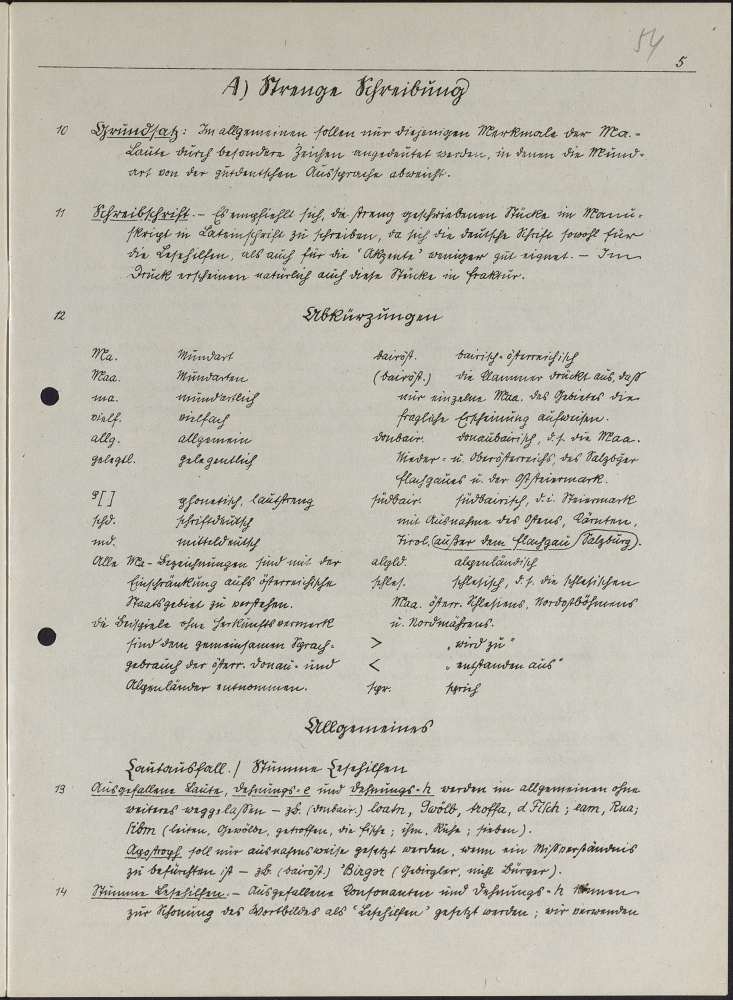 54
5
A) Strenge Schreibung
10 Grundsatz: Im allgemeinen sollen nur diejenigen Merkmale der Ma.-
Laute durch besondere Zeichen angedeutet werden, in denen die Mund-
art von der gutdeutschen Aussprache abweicht.
11 Schreibschrift. – Es empfiehlt sich, die streng geschriebenen Stücke im Manu-
skript in Lateinschrift zu schreiben, da sich die deutsche Schrift sowohl für
die Lesehilfen, als auch für die 'Akzente' weniger gut eignet. – Im
Druck erscheinen natürlich auch diese Stücke in Fraktur.
12 Abkürzungen
Ma. Mundart
Maa. Mundarten
ma. mundartlich
vielf. vielfach
allg. allgemein
gelegtl. gelegentlich
[ ] phonetisch, lautstreng
schd. schriftdeutsch
md. mitteldeutsch
Alle Ma-Bezeichnungen sind mit der
Einschränkung aufs österreichische
Staatsgebiet zu verstehen.
Die Beispiele ohne Herkunftsvermerk
sind dem gemeinsamen Sprach-
gebrauch der österr. Donau- und
Alpenländer entnommen.
bairöst. bairisch-österreichisch
(bairöst.) die Klammer drückt aus, daß
nur einzelne Maa. des Gebietes die
fragliche Erscheinung aufweisen.
donbair. donaubairisch, d.s. die Maa.
Nieder- u. Oberösterreichs, des Salzbger
Flachgaues u. der Oststeiermark.
südbair. südbairisch, d.i. Steiermark
mit Ausnahme des Ostens, Kärnten,
Tirol, (außer dem Flachgau) Salzburg).
alpld. alpenländisch
schles. schlesisch, d.s. die schlesischen
Maa. österr. Schlesiens, Nordostböhmens
u. Nordmährens.
> „wird zu"
< „entstanden aus"
spr. sprich
Allgemeines
Lautausfall. / Stumme Lesehilfen
13 Ausgefallene Laute, Dehnungs-e und Dehnungs-h werden im allgemeinen ohne
weiteres weggelassen – zb. (donbair.) loatn, Gwölb, troffa, d Fisch; eam, Rua;
sibm (leiten, Gewölbe, getroffen, die Fische; ihm, Ruhe; sieben).
Apostroph soll nur ausnahmsweise gesetzt werden, wenn ein Mißverständnis
zu befürchten ist – zb (bairöst.) 'Birger (Gebirgler, nicht Bürger).
14 Stumme Lesehilfen. – Ausgefallene Konsonanten und Dehnungs-h können
zur Schonung des Wortbildes als 'Lesehilfen' gesetzt werden; wir verwenden